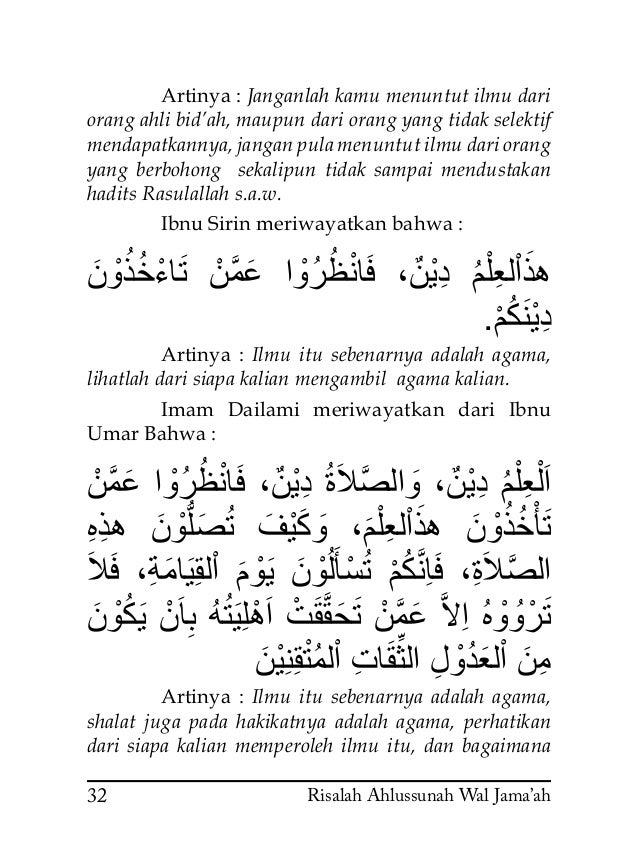 Artinya : Janganlah kamu menuntut ilmu dari
orang ahli bid’ah, maupun dari orang yang tidak selektif
mendapatkannya, jangan pula menuntut ilmu dari orang
yang berbohong sekalipun tidak sampai mendustakan
hadits Rasulallah s.a.w.
Ibnu Sirin meriwayatkan bahwa :
هذَاْلعِلْمُ دِيْنٌ، فَانْظُرُوْا عَمَّنْ تَاءْخُذُوْنَ
دِيْنَكُمْ.
Artinya : Ilmu itu sebenarnya adalah agama,
lihatlah dari siapa kalian mengambil agama kalian.
Imam Dailami meriwayatkan dari Ibnu
Umar Bahwa :
اَلْعِلْمُ دِيْنٌ، وَالصَّلاَةُ دِيْنٌ، فَانْظُرُوْا عَمَّنْ
تَأْخُذُوْنَ هذَاْلعِلْمَ، وَكَيْفَ تُصَلُّوْنَ هذِهِ
الصَّلاَةِ، فَاِنَّكُمْ تُسْأَلُوْنَ يَوْمَ اْلقِيَامَةِ، فَلاَ
تَرْوُوْهُ اِلاَّ عَمَّنْ تَحَقَّقَتْ اَهْلِيَتُهُ بِاَنْ يَكُوْنَ
مِنَ اْلعَدُوْلِ الثِّقَاتِ اْلمُتْقِنِيْنَ
Artinya : Ilmu itu sebenarnya adalah agama,
shalat juga pada hakikatnya adalah agama, perhatikan
dari siapa kalian memperoleh ilmu itu, dan bagaimana
32 Risalah Ahlussunah Wal Jama’ah